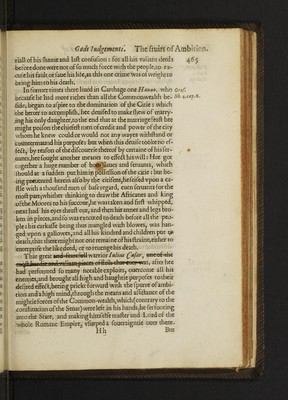 Gods Iudgements. The fruits of Ambition. 465
riall of his shame and last confusion: for all his valiant deeds
before done were not of so much force with the people, to
cute his faith or saue his life, as this one crime was of weight to
bring him to death.
In former times there liued in Carthage one Hanno, who
because he had more riches than all the Commonwealth be-
side, began to aspire to the domination of the Citie: which
the better to accomplish, hee deuised to make shew of marry-
ing his only daughter, to the end that at the marriage feast he
might poison the chiefest men of credit and power of the city
whom he knew could or would not any wayes withstand or
countermaund his purpose: but when this deuise tooke no ef-
fect, by reason of the discouerie thereof by certaine of his ser-
uants, hee sought another meanes to effect his will: Hee got
together a huge number of bondslaues and seruants, which
should at a sudden put him in possession of the citie: but be-
ing preuented herein also by the citisens, he seised vpon a ca-
stle with a thousand men of base regard, euen seruants for the
most part, whither thinking to draw the Africanes and king
of the Moores to his succour, he was taken and first whipped,
next had his eyes thrust out, and then his armes and legs bro-
ken in pieces, and so was executed to death before all the peo-
ple: his carkasse being thus mangled with blowes, was han-
ged vpon a gallowes, and all his kindred and children put to
death, that there might not one remaine of his straine, either to
enterprise the like deed, or to reuenge his death.
That great and fearefull warrior Iulius Cæsar, one of the
most hardie and valiant pieces of flesh that euer was, after he
had performed so many notable exploits, ouercome all his
enemies, and brought all high and haughtie purposes to their
desired effect, being prickt forward with the spurre of ambi-
tion and a high mind, through the meanes and assistance of the
mightie forces of the Common-wealth, which (contrary to the
constitution of the Senat) were left in his hands, he
into the State, and making himselfe master and Lord of the
whole Romane Empire, vsurped a soueraigntie ouer them.
Hh But